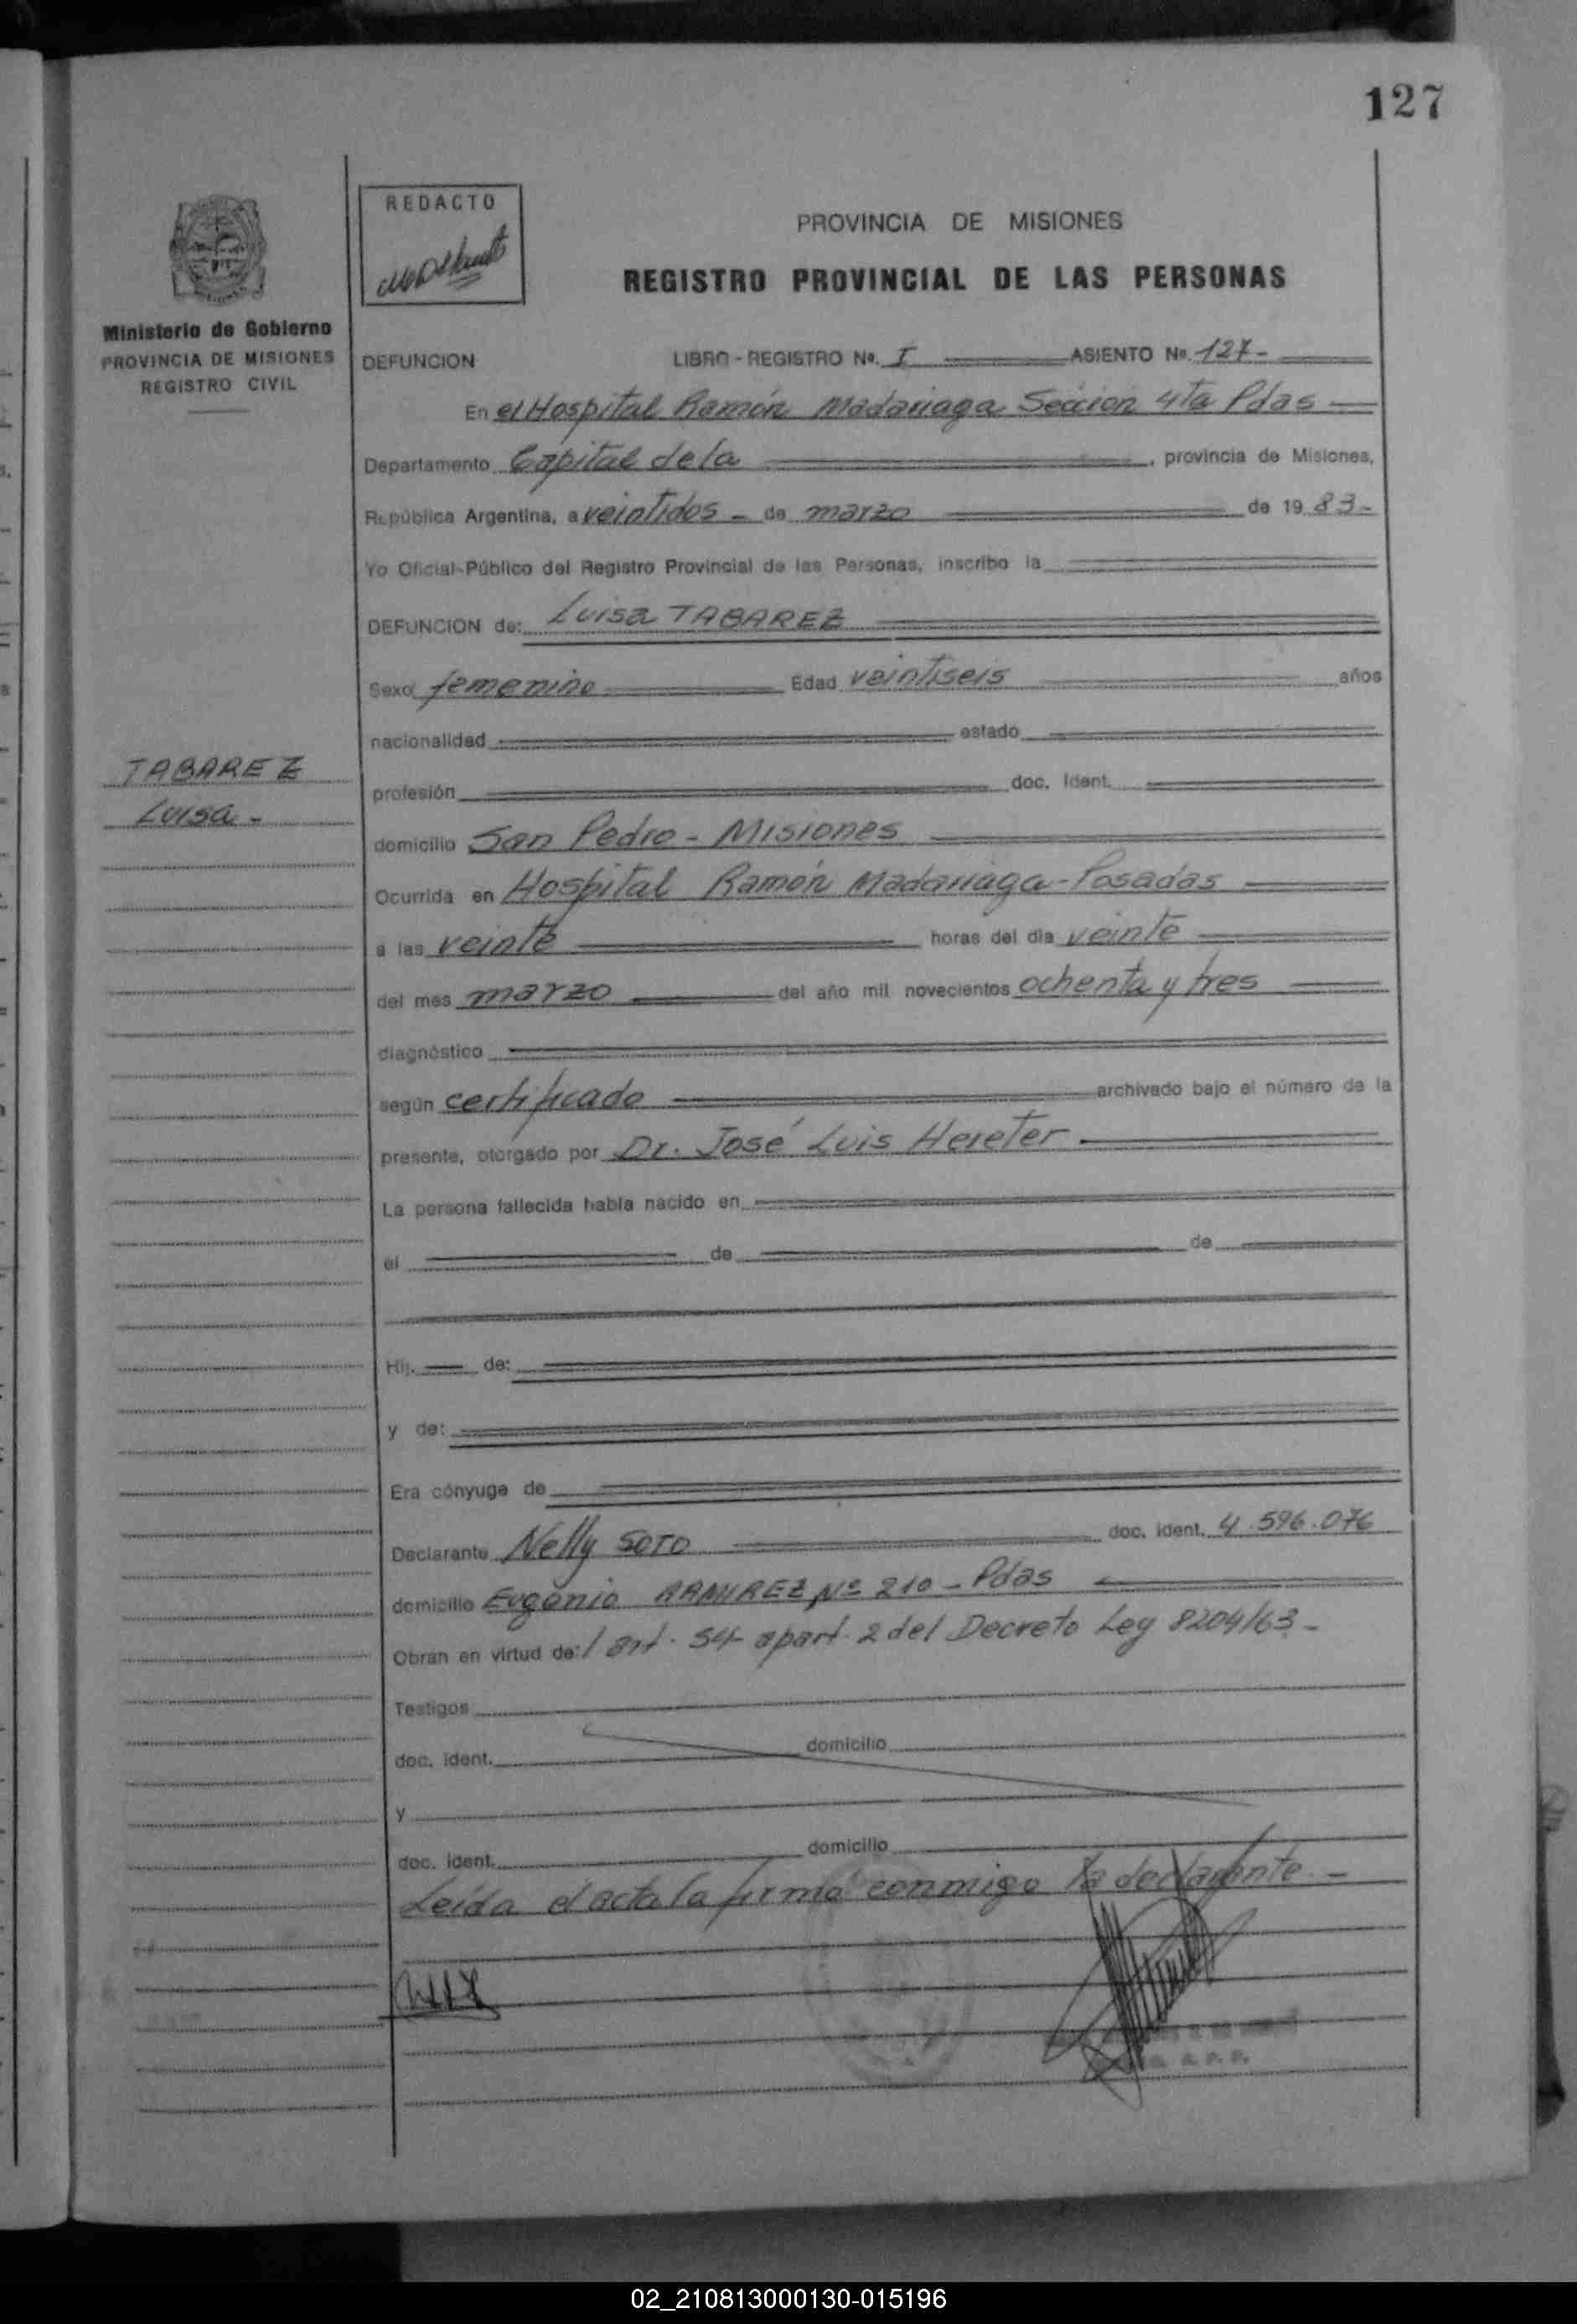 127
REDACTO
PROVINCIA DE MISIONES
REGISTRO PROVINCIAL DE LAS PERSONAS
Ministerio de Gobierno
PROVINCIA DE MISIONES
REGISTRO CIVIL
DEFUNCION LIBRO - REGISTRO Nº. I ASIENTO Nº. 127-
En el Hospital Ramón Madariaga Sección 4ta Pdas
Departamento Capital de la , provincia de Misiones,
República Argentina, a veintidos - de marzo de 19 83-
Yo Oficial-Público del Registro Provincial de las Personas, inscribo la
DEFUNCION de: Luisa TABAREZ
Sexo femenino Edad veintiseis años
nacionalidad estado
TABAREZ
Luisa-
profesión doc. Ident.
domicilio San Pedro - Misiones
Ocurrida en Hospital Ramón Madariaga-Posadas
a las veinte horas del día veinte
del mes marzo del año mil novecientos ochenta y tres
diagnóstico
según certificado archivado bajo el número de la
presente, otorgado por Dr. José Luis Hereter
La persona fallecida había nacido en
el de de
Hij. de:
y de:
Era cónyuge de
Declarante Nelly SOTO doc. ident. 4.596.076
domicilio Eugenio RAMIREZ Nº 210 - Pdas
Obran en virtud de: l art. 54 apart. 2 del Decreto Ley 8204/63-
Testigos
doc. ident. domicilio
y
doc. ident. domicilio
Leída el acta la firma conmigo la declarante.-
02_210813000130-015196